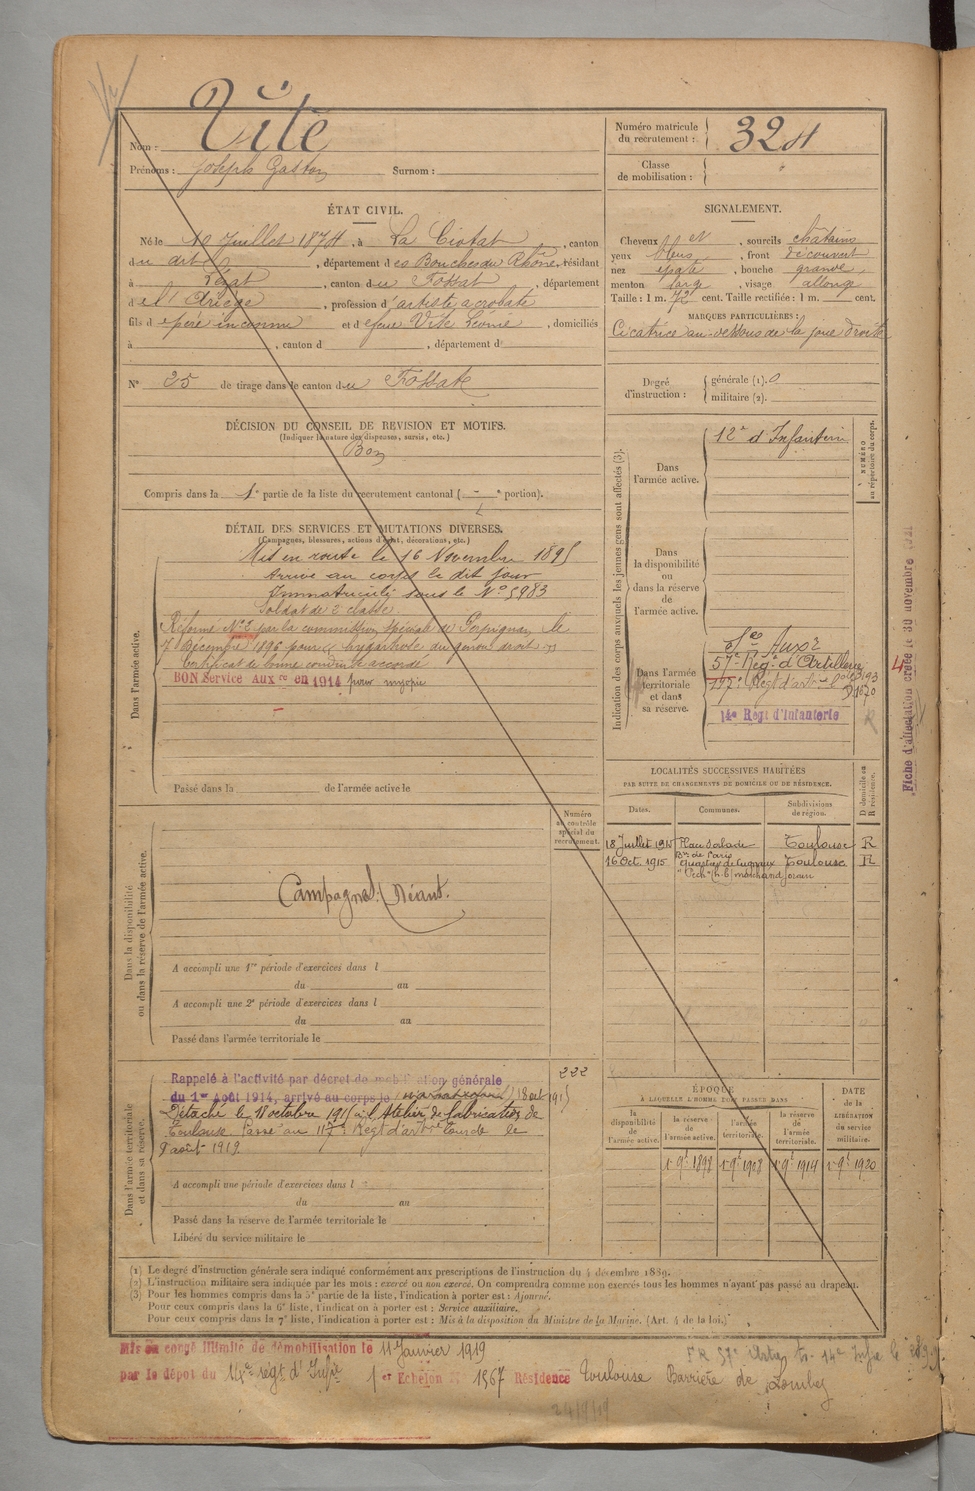 Vité
Nom :
Prénoms : Joseph Gaston Surnom :
Numéro matricule du recrutement : 324
Classe de mobilisation :
ÉTAT CIVIL.
Né le 10 Juillet 1874, à La Ciotat, canton
du dit, département des Bouches du Rhône, résidant
à Lézat, canton du Fossat, département
de l'Ariège, profession d'artiste acrobate
fils de père inconnu et de feue Vité Léonie, domiciliés
à , canton d , département d
N° 25 de tirage dans le canton du Fossat
SIGNALEMENT.
Cheveux et , sourcils châtains
yeux bleus, front découvert
nez épaté, bouche grande,
menton large, visage allongé
Taille : 1 m. 72 cent. Taille rectifiée : 1 m. cent.
MARQUES PARTICULIÈRES :
Cicatrice au-dessous de la joue droite
Degré d'instruction : générale (1). 0
militaire (2).
DÉCISION DU CONSEIL DE REVISION ET MOTIFS.
(Indiquer la nature des dispenses, sursis, etc.)
Bon
Compris dans la 1re partie de la liste du recrutement cantonal ( - e portion).
DÉTAIL DES SERVICES ET MUTATIONS DIVERSES.
(Campagnes, blessures, actions d'éclat, décorations, etc.)
Dans l'armée active.
Mis en route le 16 Novembre 1895
Arrivé au corps le dit jour
Immatriculé sous le N° 5983
Soldat de 2e classe.
Réformé N° 2 par la commission spéciale de Perpignan le
7 Décembre 1896 pour hydarthrose du genou droit
Certificat de bonne conduite accordé
BON Service Auxre en 1914 pour myopie
Passé dans la de l'armée active le
Indication des corps auxquels les jeunes gens sont affectés (3).
NUMÉRO au répertoire du corps.
Dans l'armée active. 12e d'Infanterie
Dans la disponibilité ou dans la réserve de l'armée active.
Dans l'armée territoriale et dans sa réserve.
Sce Auxre
57e Régt d'Artillerie
117e Régt d'artie lde
14e Régt d'Infanterie
Fiche d'affectation créée le 30 novembre
LOCALITÉS SUCCESSIVES HABITÉES
PAR SUITE DE CHANGEMENTS DE DOMICILE OU DE RÉSIDENCE.
Dates. Communes. Subdivisions de région. D domicile ou R résidence.
18 Juillet 1915 Toulouse R
16 Oct. 1915 Toulouse R
marchand forain
Numéro au contrôle spécial du recrutement.
Dans la disponibilité ou dans la réserve de l'armée active.
Campagnes : Néant.
A accompli une 1re période d'exercices dans l
du au
A accompli une 2e période d'exercices dans l
du au
Passé dans l'armée territoriale le
222
Dans l'armée territoriale et dans sa réserve.
Rappelé à l'activité par décret de mobilisation générale
du 1er Août 1914, arrivé au corps le 18 oct 1915
Détaché le 18 octobre 1915 à l'Atelier de fabrication de
Toulouse. Passé au 117e Régt d'artie lourde le
9 août 1919
A accompli une période d'exercices dans l
du au
Passé dans la réserve de l'armée territoriale le
Libéré du service militaire le
ÉPOQUE
À LAQUELLE L'HOMME DOIT PASSER DANS
DATE de la LIBÉRATION du service militaire.
la disponibilité de l'armée active. la réserve de l'armée active. l'armée territoriale. la réserve de l'armée territoriale.
1er 9e 1898 1er 9e 1908 1er 9e 1914 1er 9e 1920
(1) Le degré d'instruction générale sera indiqué conformément aux prescriptions de l'instruction du 4 décembre 1889.
(2) L'instruction militaire sera indiquée par les mots : exercé ou non exercé. On comprendra comme non exercés tous les hommes n'ayant pas passé au drapeau.
(3) Pour les hommes compris dans la 5e partie de la liste, l'indication à porter est : Ajourné.
Pour ceux compris dans la 6e liste, l'indication à porter est : Service auxiliaire.
Pour ceux compris dans la 7e liste, l'indication à porter est : Mis à la disposition du Ministre de la Marine. (Art. 4 de la loi.)
Mis en congé illimité de démobilisation le 11 Janvier 1919
par le dépot du 14e régt d'Infie 1er Echelon N° 1567 Résidence Toulouse Barrière de Lombez
24/9/19